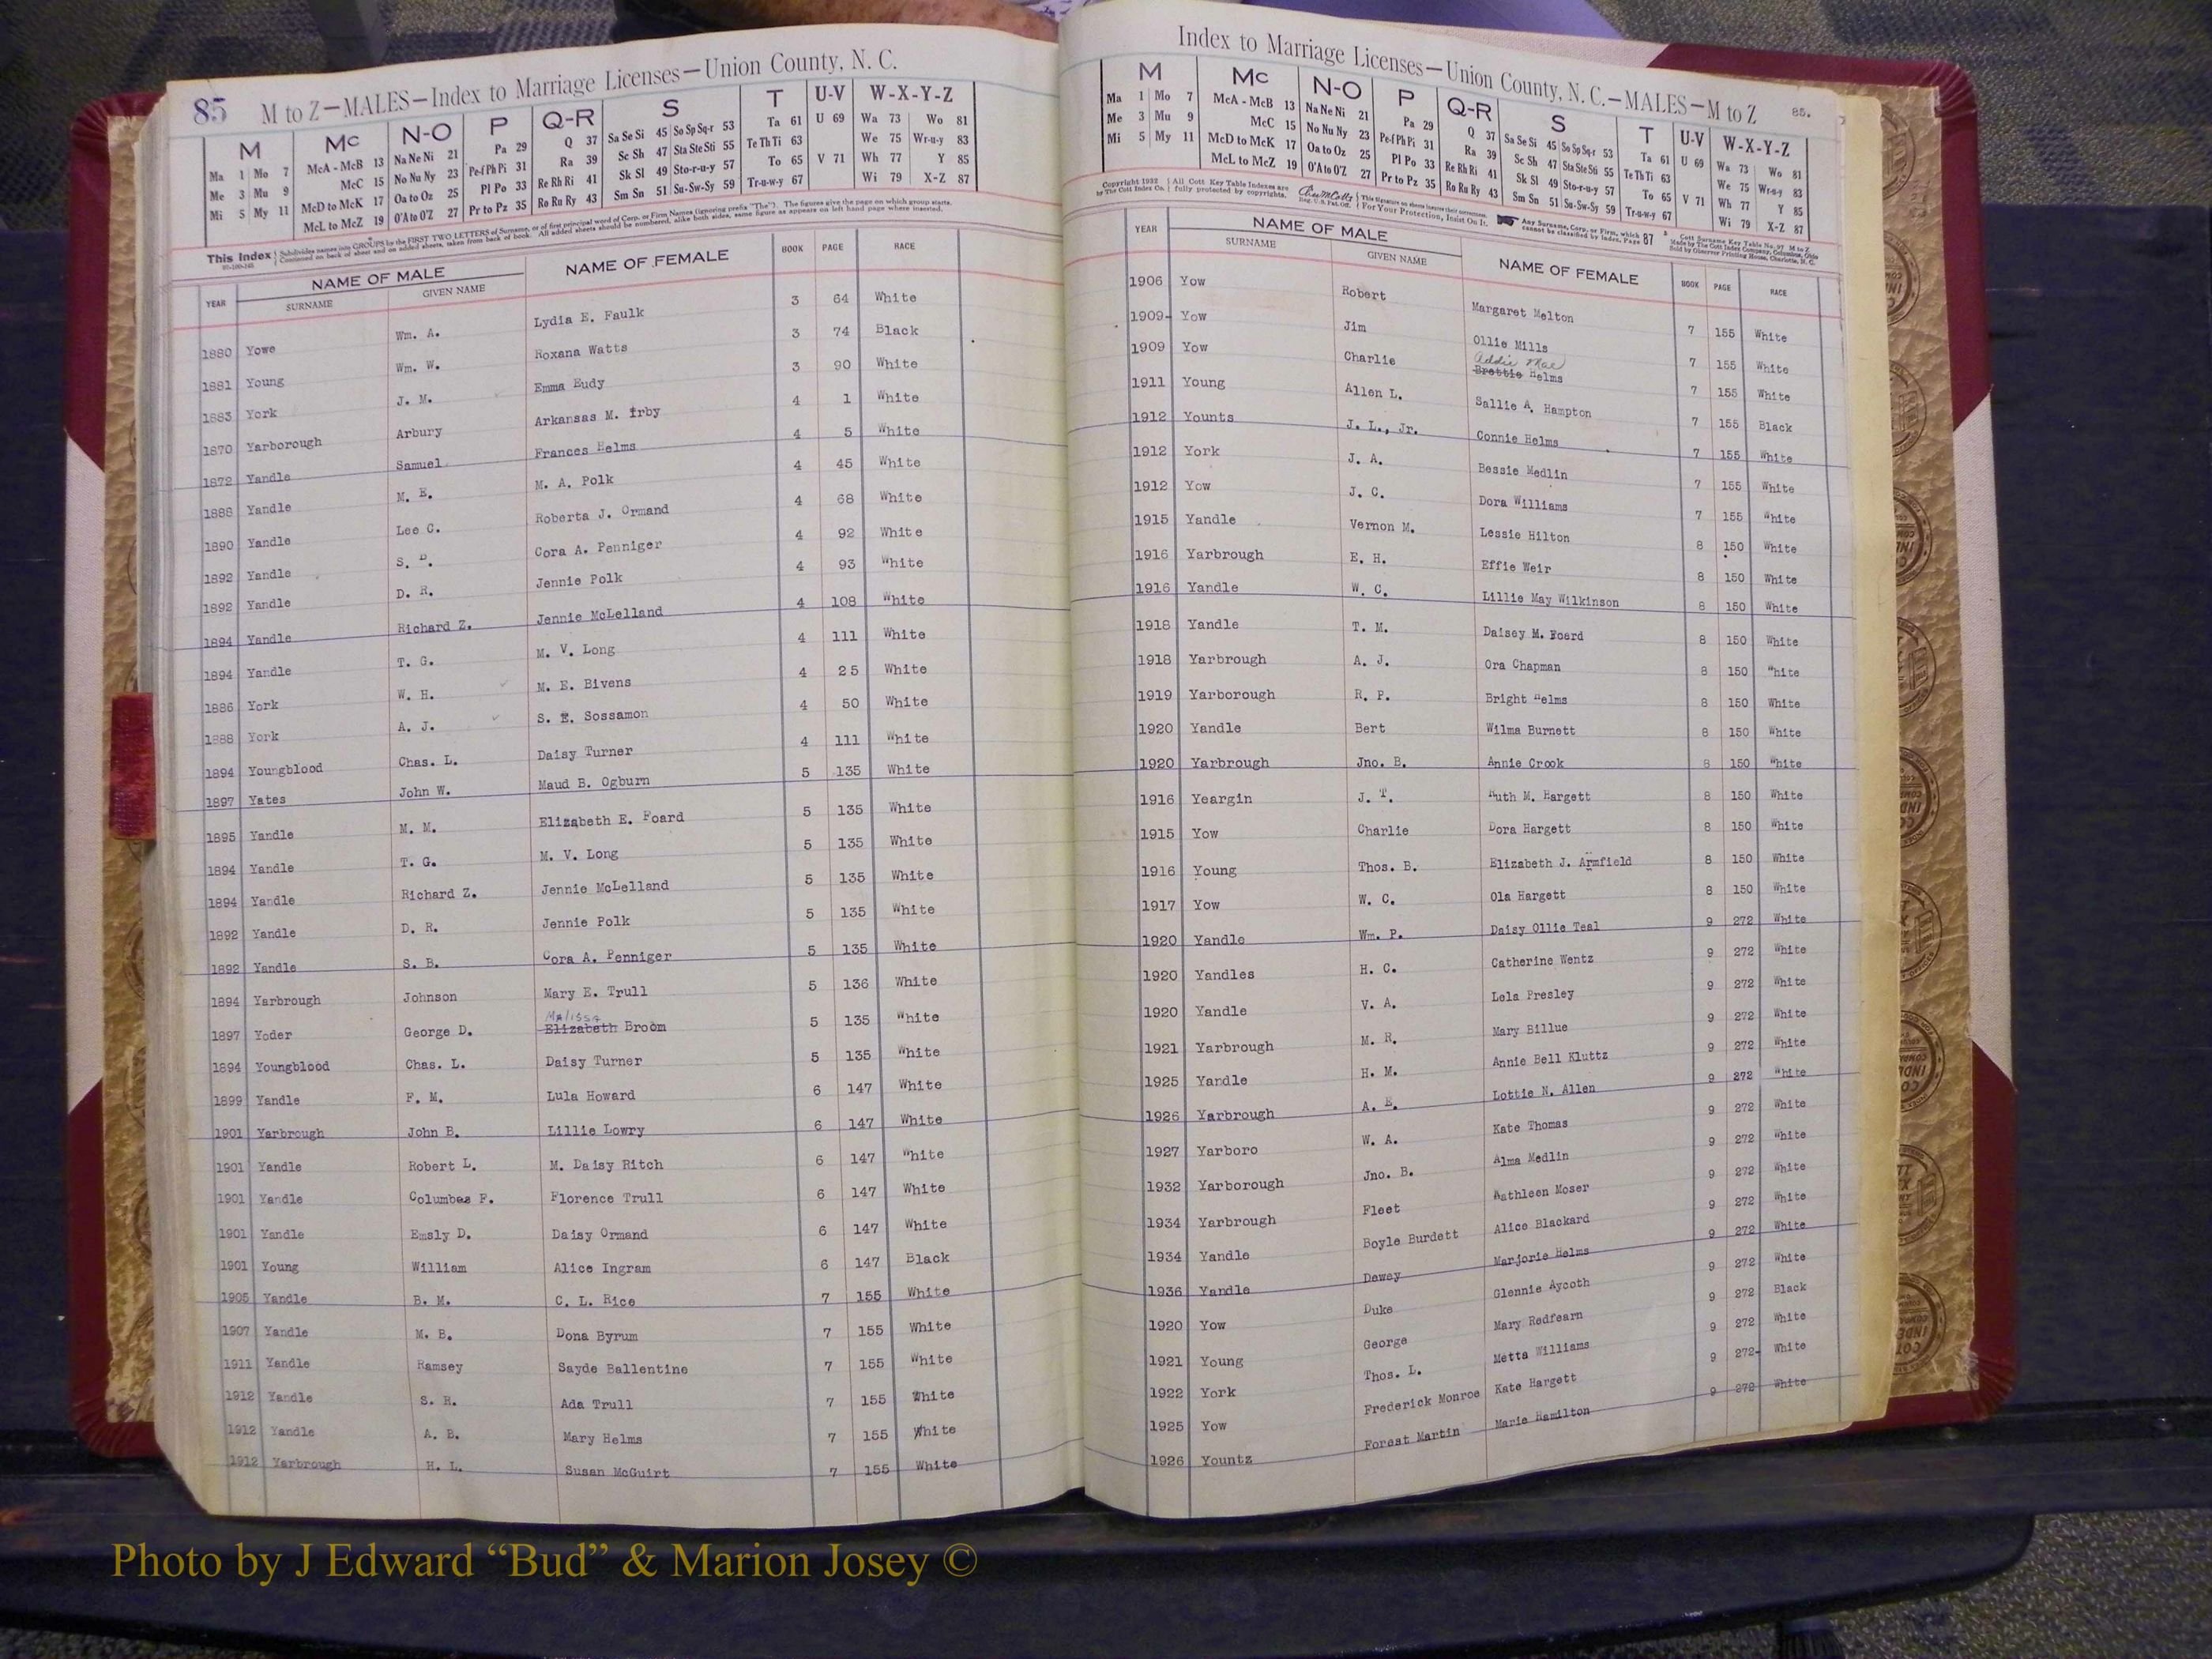 85 M to Z—MALES—Index to Marriage Licenses—Union County, N. C.
M Mc N-O P Q-R S T U-V W-X-Y-Z
Ma 1 Mo 7 McA - McB 13 Na Ne Ni 21 Pa 29 Q 37 Sa Se Si 45 So Sp Sq-r 53 Ta 61 U 69 Wa 73 Wo 81
Me 3 Mu 9 McC 15 No Nu Ny 23 Pe-f Ph Pi 31 Ra 39 Sc Sh 47 Sta Ste Sti 55 Te Th Ti 63 We 75 Wr-u-y 83
Mi 5 My 11 McD to McK 17 Oa to Oz 25 Pl Po 33 Re Rh Ri 41 Sk Sl 49 Sto-r-u-y 57 To 65 V 71 Wh 77 Y 85
McL to McZ 19 O'A to O'Z 27 Pr to Pz 35 Ro Ru Ry 43 Sm Sn 51 Su-Sw-Sy 59 Tr-u-w-y 67 Wi 79 X-Z 87
This Index Subdivides names into GROUPS by the FIRST TWO LETTERS of Surname, or of first principal word of Corp. or Firm Names (ignoring prefix "The"). The figures give the page on which group starts.
Continued on back of sheet and on added sheets, taken from back of book. All added sheets should be numbered, alike both sides, same figure as appears on left hand page where inserted.
YEAR NAME OF MALE SURNAME GIVEN NAME NAME OF FEMALE BOOK PAGE RACE
1880 Yowe Wm. A. Lydia E. Faulk 3 64 White
1881 Young Wm. W. Roxana Watts 3 74 Black
1883 York J. M. Emma Eudy 3 90 White
1870 Yarborough Arbury Arkansas M. Irby 4 1 White
1872 Yandle Samuel Frances Helms 4 5 White
1888 Yandle M. E. M. A. Polk 4 45 White
1890 Yandle Lee C. Roberta J. Ormand 4 68 White
1892 Yandle S. B. Cora A. Penniger 4 92 White
1892 Yandle D. R. Jennie Polk 4 93 White
1894 Yandle Richard Z. Jennie McLelland 4 108 White
1894 Yandle T. G. M. V. Long 4 111 White
1886 York W. H. M. E. Bivens 4 25 White
1888 York A. J. S. E. Sossamon 4 50 White
1894 Youngblood Chas. L. Daisy Turner 4 111 White
1897 Yates John W. Maud B. Ogburn 5 135 White
1895 Yandle M. M. Elizabeth E. Foard 5 135 White
1894 Yandle T. G. M. V. Long 5 135 White
1894 Yandle Richard Z. Jennie McLelland 5 135 White
1892 Yandle D. R. Jennie Polk 5 135 White
1892 Yandle S. B. Cora A. Penniger 5 135 White
1894 Yarbrough Johnson Mary E. Trull 5 136 White
Malissa
1897 Yoder George D. Elizabeth Broom 5 135 White
1894 Youngblood Chas. L. Daisy Turner 5 135 White
1899 Yandle F. M. Lula Howard 6 147 White
1901 Yarbrough John B. Lillie Lowry 6 147 White
1901 Yandle Robert L. M. Daisy Ritch 6 147 White
1901 Yandle Columbes F. Florence Trull 6 147 White
1901 Yandle Emsly D. Daisy Ormand 6 147 White
1901 Young William Alice Ingram 6 147 Black
1905 Yandle B. M. C. L. Rice 7 155 White
1907 Yandle M. B. Dona Byrum 7 155 White
1911 Yandle Ramsey Sayde Ballentine 7 155 White
1912 Yandle S. R. Ada Trull 7 155 White
1912 Yandle A. B. Mary Helms 7 155 White
1912 Yarbrough H. L. Susan McGuirt 7 155 White
Index to Marriage Licenses—Union County, N. C.—MALES—M to Z 85.
M Mc N-O P Q-R S T U-V W-X-Y-Z
Ma 1 Mo 7 McA - McB 13 Na Ne Ni 21 Pa 29 Q 37 Sa Se Si 45 So Sp Sq-r 53 Ta 61 U 69 Wa 73 Wo 81
Me 3 Mu 9 McC 15 No Nu Ny 23 Pe-f Ph Pi 31 Ra 39 Sc Sh 47 Sta Ste Sti 55 Te Th Ti 63 We 75 Wr-u-y 83
Mi 5 My 11 McD to McK 17 Oa to Oz 25 Pl Po 33 Re Rh Ri 41 Sk Sl 49 Sto-r-u-y 57 To 65 V 71 Wh 77 Y 85
McL to McZ 19 O'A to O'Z 27 Pr to Pz 35 Ro Ru Ry 43 Sm Sn 51 Su-Sw-Sy 59 Tr-u-w-y 67 Wi 79 X-Z 87
Copyright 1932 by The Cott Index Co. All Cott Key Table Indexes are fully protected by copyrights. Reg. U.S. Pat. Off. This Signature on sheets insures their correctness. For Your Protection, Insist On It. Any Surname, Corp. or Firm, which cannot be classified by Index, Page 87
Cott Surname Key Table No. 97 M to Z
Made by The Cott Index Company, Columbus, Ohio
Sold by Observer Printing House, Charlotte, N. C.
YEAR NAME OF MALE SURNAME GIVEN NAME NAME OF FEMALE BOOK PAGE RACE
1906 Yow Robert Margaret Melton 7 155 White
1909 Yow Jim Ollie Mills 7 155 White
Addie Mae
1909 Yow Charlie Brettie Helms 7 155 White
1911 Young Allen L. Sallie A. Hampton 7 155 Black
1912 Younts J. L., Jr. Connie Helms 7 155 White
1912 York J. A. Bessie Medlin 7 155 White
1912 Yow J. C. Dora Williams 7 155 White
1915 Yandle Vernon M. Lessie Hilton 8 150 White
1916 Yarbrough E. H. Effie Weir 8 150 White
1916 Yandle W. C. Lillie May Wilkinson 8 150 White
1918 Yandle T. M. Daisey M. Foard 8 150 White
1918 Yarbrough A. J. Ora Chapman 8 150 White
1919 Yarborough R. P. Bright Helms 8 150 White
1920 Yandle Bert Wilma Burnett 8 150 White
1920 Yarbrough Jno. B. Annie Crook 8 150 White
1916 Yeargin J. T. Ruth M. Hargett 8 150 White
1915 Yow Charlie Dora Hargett 8 150 White
1916 Young Thos. B. Elizabeth J. Armfield 8 150 White
1917 Yow W. C. Ola Hargett 8 150 White
1920 Yandle Wm. P. Daisy Ollie Teal 9 272 White
1920 Yandles H. C. Catherine Wentz 9 272 White
1920 Yandle V. A. Lela Presley 9 272 White
1921 Yarbrough M. R. Mary Billue 9 272 White
1925 Yandle H. M. Annie Bell Kluttz 9 272 White
1926 Yarbrough A. E. Lottie N. Allen 9 272 White
1927 Yarboro W. A. Kate Thomas 9 272 White
1932 Yarborough Jno. B. Alma Medlin 9 272 White
1934 Yarbrough Fleet Kathleen Moser 9 272 White
1934 Yandle Boyle Burdett Alice Blackard 9 272 White
1936 Yandle Dewey Marjorie Helms 9 272 White
1920 Yow Duke Glennie Aycoth 9 272 White
1921 Young George Mary Redfearn 9 272 Black
1922 York Thos. L. Metta Williams 9 272 White
1925 Yow Frederick Monroe Kate Hargett 9 272 White
1926 Yountz Forest Martin Marie Hamilton 9 272 White
Photo by J Edward “Bud” & Marion Josey ©